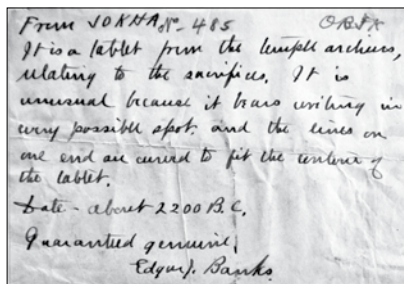 From JOKHA No- 485
It is a tablet from the temple archives,
relating to the sacrifices. It is
unusual because it bears writing in
every possible spot. and the lines on
one end are curved to fit the contour of
the tablet.
Date - about 2200 B.C.
Guaranteed genuine,
Edgar J. Banks.